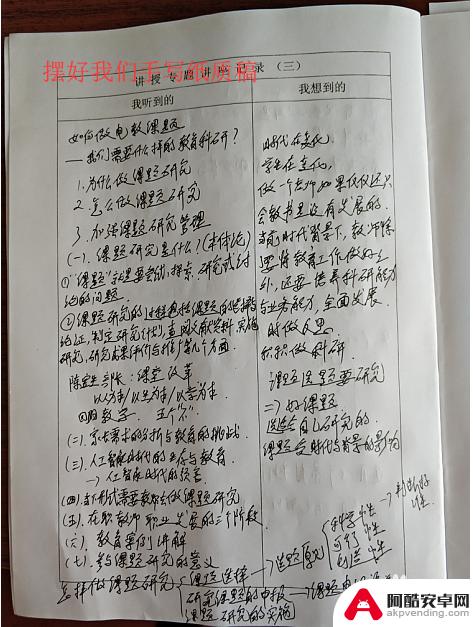 摆好我们手写纸质稿
讲授专题讲座记录（三）
我听到的
如何做电教课题
——我们需要什么样的教育科研?
1.为什么做课题研究
2.怎么做课题研究
3.加强课题研究管理
(一).课题研究是什么?(本体论)
①"课题"就是要尝试,探索,研究或讨
论的问题.
②课题研究的过程包括课题的选择与
论证,制定研究计划,查阅文献资料,实施
研究,研究成果评价与推广等几个方面.
陈宝生部长:课堂改革
以为本/以生为本/以学为本.
四个教学. 五个"不".
(二).京大需求的分析与教育的挑战.
(三).人工智能时代的生存与教育
→人工智能时代的综音
(四)当下形式需要教师会做课题研究
(五).在职教师职业发展的三个阶段.
(六).教育案例讲解
(七).参与课题研究的意义
怎样做课题研究
课题选择
研究课题的申报
课题研究的实施
我想到的
时代在变化
学生在变化,
做一个老师如果仅仅还只
会教书是没有发展的.
当前时代背景下,教师除
要将教育工作做好之
外,还要培养科研能力
与业务能力,全面发展.
时做反思
积极做科研
课题选题要研究
二)好课题
选适合自己研究的.
课题受时代与背景的影响
→选题原则
科学性
可行性
创造性
→判断好
坏.
阿酷安卓网
akpvending.com